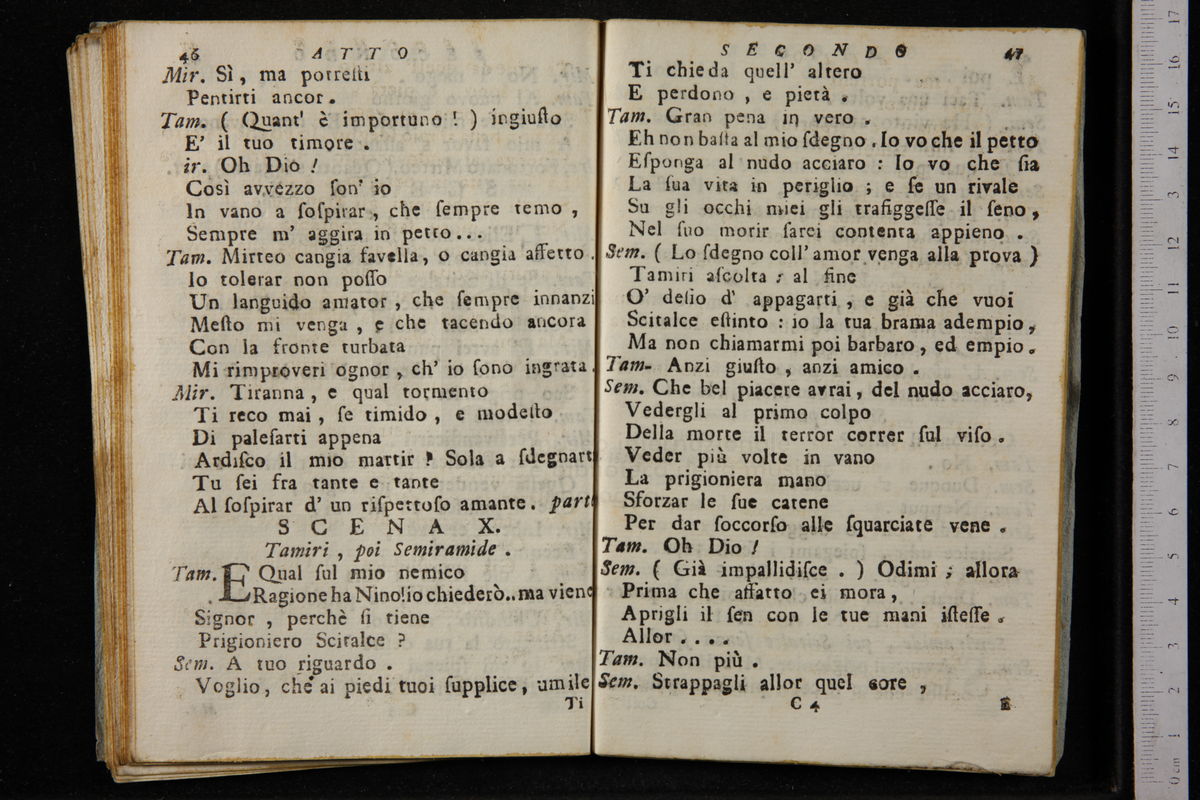 46 ATTO
Mir. Sì, ma potreſti
Pentirti ancor.
Tam. ( Quant' è importuno ! ) ingiuſto
E' il tuo timore .
ir. Oh Dio !
Così avvezzo ſon' io
In vano a ſoſpirar , che ſempre temo ,
Sempre m' aggira in petto...
Tam. Mirteo cangia favella, o cangia affetto .
Io tolerar non poſſo
Un languido amator , che ſempre innanzi
Meſto mi venga , e che tacendo ancora
Con la fronte turbata
Mi rimproveri ognor , ch' io ſono ingrata.
Mir. Tiranna, e qual tormento
Ti reco mai, ſe timido , e modeſto
Di paleſarti appena
Ardiſco il mio martir ? Sola a ſdegnart
Tu ſei fra tante e tante
Al ſoſpirar d' un riſpettoſo amante. part
SCENA X.
Tamiri , poi Semiramide .
Tam. E Qual ſul mio nemico
Ragione ha Nino!io chiederò..ma viene
Signor , perchè ſi tiene
Prigioniero Scitalce ?
Sem. A tuo riguardo .
Voglio, che ai piedi tuoi ſupplice, umile
Ti
SECONDO 47
Ti chieda quell' altero
E perdono , e pietà .
Tam. Gran pena in vero .
Eh non baſta al mio ſdegno . Io vo che il petto
Eſponga al nudo acciaro : Io vo che ſia
La ſua vita in periglio ; e ſe un rivale
Su gli occhi miei gli trafiggeſſe il ſeno,
Nel ſuo morir ſarei contenta appieno .
Sem. ( Lo ſdegno coll' amor venga alla prova )
Tamiri aſcolta : al fine
O' deſio d' appagarti , e già che vuoi
Scitalce eſtinto : io la tua brama adempio,
Ma non chiamarmi poi barbaro, ed empio.
Tam- Anzi giuſto , anzi amico .
Sem. Che bel piacere avrai, del nudo acciaro,
Vedergli al primo colpo
Della morte il terror correr ſul viſo .
Veder più volte in vano
La prigioniera mano
Sforzar le ſue catene
Per dar ſoccorſo alle ſquarciate vene .
Tam. Oh Dio !
Sem. ( Già impallidiſce . ) Odimi ; allora
Prima che affatto ei mora,
Aprigli il ſen con le tue mani iſteſſe .
Allor . . . .
Tam. Non più .
Sem. Strappagli allor quel core ,
C 4 E